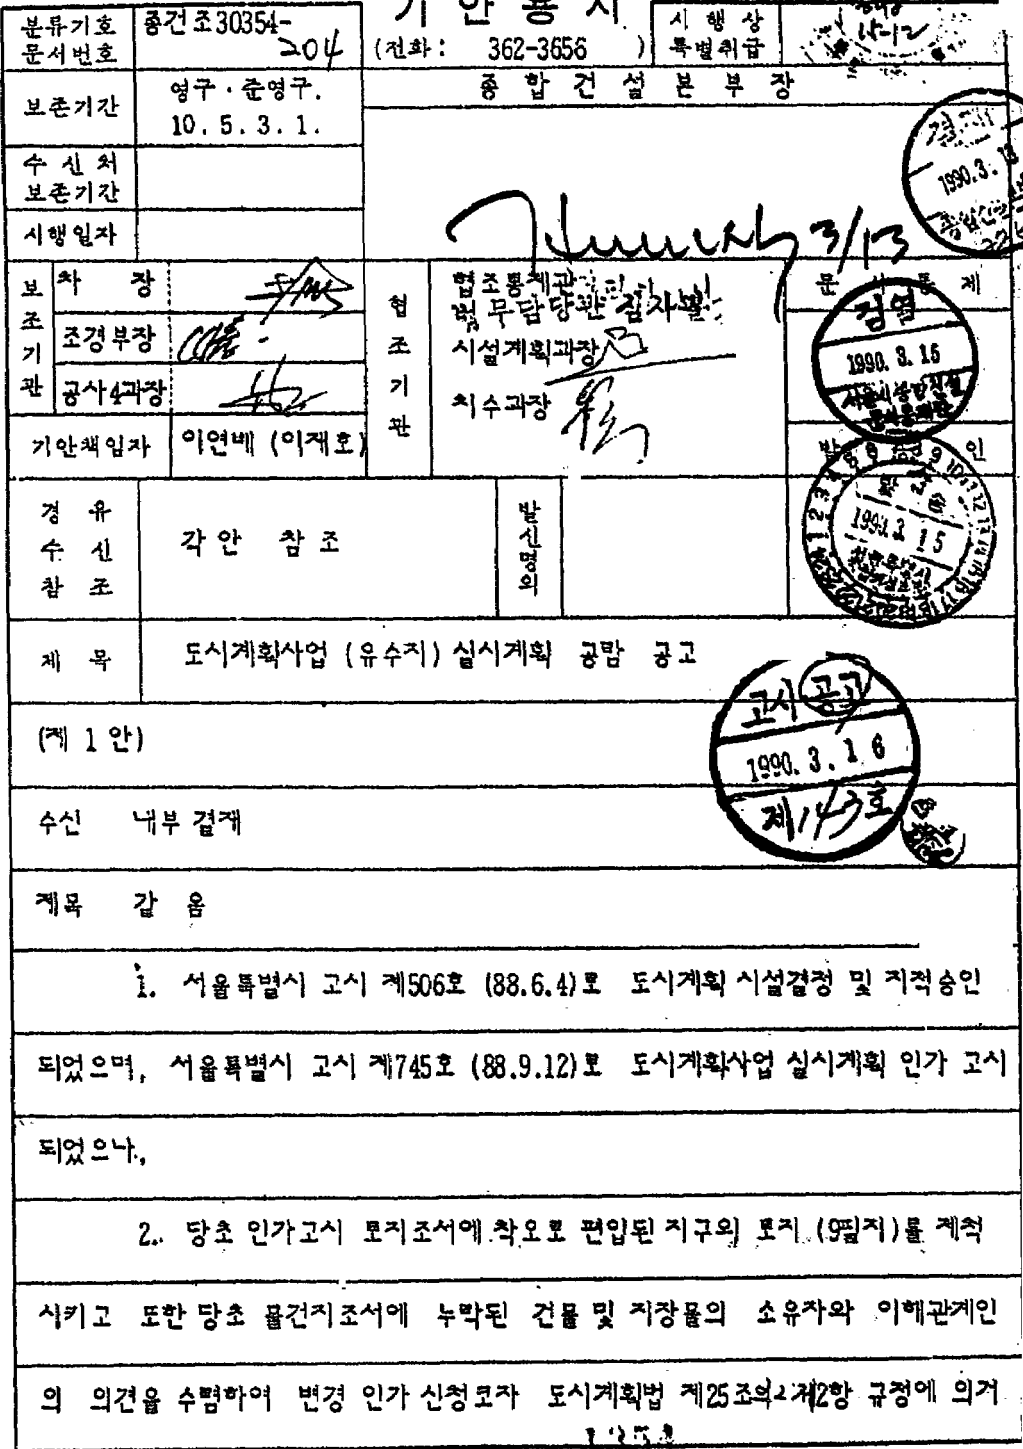 기 안 용 지
분류기호 문서번호
종건조30354-
204
(전화 : 362-3656 )
시 행 상 특별취급
보존기간
영구 · 준영구.
10. 5. 3. 1.
종 합 건 설 본 부 장
수 신 처 보존기간
시행일자
3/13
1990.3. 13
보조기관
차 장
조경부장
공사4과장
협조기관
협조통제관
법무담당관 심사필
시설계획과장
치수과장
문 서 통 제
검열
1990. 3. 15
기안책임자
이연배 (이재호)
발 인
1990.3. 15
경 유
수 신
참 조
각안 참조
발신명의
제 목
도시계획사업 (유수지) 실시계획 공람 공고
고시 공고
1990. 3. 16
제143호
(제 1 안)
수신 내부결재
제목 같 음
1. 서울특별시 고시 제506호 (88.6.4)로 도시계획 시설결정 및 지적승인
되었으며, 서울특별시 고시 제745호 (88.9.12)로 도시계획사업 실시계획 인가 고시
되었으나,
2. 당초 인가고시 토지조서에 착오로 편입된 지구외 토지 (9필지)를 제척
시키고 또한 당초 물건지조서에 누락된 건물 및 지장물의 소유자와 이해관계인
의 의견을 수렴하여 변경 인가 신청코자 도시계획법 제25조의2 제2항 규정에 의거